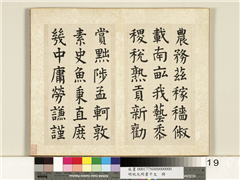 農務茲稼穡俶
載南畝我藝黍
稷稅熟貢新勸
賞黜陟孟軻敦
素史魚秉直庶
幾中庸勞謙謹
19